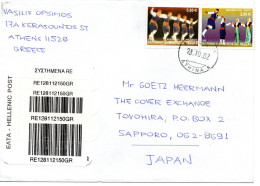 VASILIS OPSIMOS
17A KERASOUNDOS ST
ATHENS 11528
GREECE
ΣΥΣΤΗΜΕΝΑ RE
RE128112150GR
RE128112150GR
RE128112150GR
RE128112150GR
ΕΛΤΑ - HELLENIC POST
Mr GOETZ HEERMANN
THE COVER EXCHANGE
TOYOHIRA, P.O. BOX 2
SAPPORO, 062-8691
JAPAN